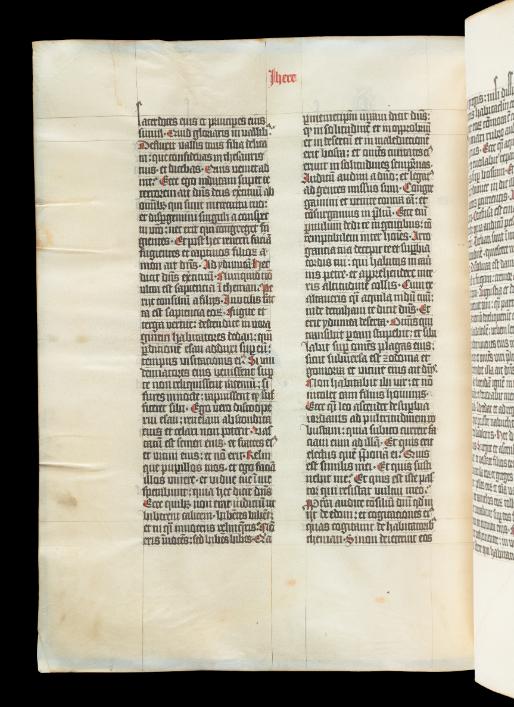 Jhere
sacerdotes eius et principes eius
simul. Quid gloriaris in vallib⁹.
Defluxit vallis tua filia delica
ta: que confidebas in thesauris
tuis et dicebas. Quis veniet ad
me. Ecce ego inducam super te
terrorem ait dn̄s deus exercituū ab
om̄ib⁹ qui sunt in circuitu tuo:
et dispergemini singuli a conspec
tu vr̄o: nec erit qui congreget fu
gientes. Et post hec reverti faciā
fugientes et captivos filior̄
amon ait dn̄s. Ad ydumeā. Hec
dicit dn̄s exercituū. Nunquid nō
ultra est sapientia ī theman. Pe
riit consiliū a filiis. Inutilis fac
ta est sapientia eor̄. Fugite et
terga vertite: descendite in vora
ginem habitatores dedan: qm̄
perditionē esau adduxi sup eū:
tempus visitationis ei⁹. Si vin
demiatores venissent sup
te non reliquissent racemū: si
fures in nocte: rapuissent qd̄ suf
ficeret sibi. Ego vero discoope
rui esau: revelavi abscondita
eius et celari non poterit. Vas
tatū est semen eius. et fratres ei⁹
et vicini eius: et nō erit. Relin
que pupillos tuos. et ego faciā
illos vivere. et vidue tue ī me
sperabunt: quia hec dicit dn̄s
Ecce quib⁹ non erat iudiciū ut
biberent calicem: bibētes bibēt:
et tu qi innocens relinqueris. Nō
eris īnocēs: sed bibēs bibes. Quia
per memetipm̄ iuravi dicit dn̄s:
qd̄ in solitudinē et in opprobriū
et in desertū et in maledictionē
erit bosra: et om̄es civitates ei⁹
erunt in solitudines sempit̄nas
Auditū audivi a dn̄o: et legat⁹
ad gentes missus sum. Congre
gamini et venite contra eā: et
consurgamus in p̄liū. Ecce eni
parvulum dedi te in gentib⁹: cō
temptibilem inter hoīes. Arro
gantia tua decepit te et superbia
cordis tui: qui habitas in caver
nis petre. et apprehendere nite
ris altitudinē collis. Cum ex
altaveris q̄i aquila nidū tuū:
inde detraham te dicit dn̄s. Et
erit ydumea deserta. Om̄is qui
transibit per eam stupebit: et sibi
labit sup om̄es plagas eius:
sicut subversa est sodoma et
gomorra et vicine eius ait dn̄s.
Non habitabit ibi vir: et nō
incolet eam filius hominis.
Ecce q̄i leo ascendet de superbia
iordanis ad pulcritudinem ro
bustam: quia subito currere fa
ciam eum ad illā. Et quis erit
electus quē p̄ponā ei. Quis
est similis mei. Et quis susti
nebit me. Et quis est iste pas
tor qui resistat vultui meo.
Propt̄ea audite cōsiliū dn̄i qd̄ in
iit de edom: et cogitationes ei⁹
quas cogitavit de habitatorib⁹
theman. Si non deiecerint eos